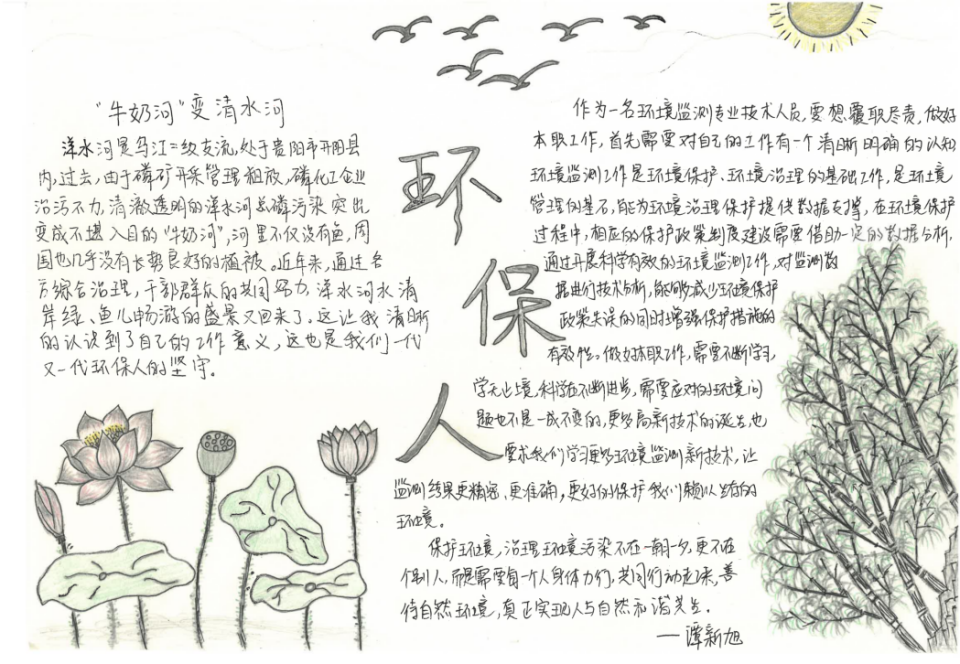 "牛奶河"变清水河
洋水河是乌江二级支流,处于贵阳市开阳县
内,过去,由于磷矿开采管理粗放,磷化工企业
治污不力,清澈透明的洋水河总磷污染突出,
变成不堪入目的"牛奶河",河里不仅没有鱼,周
围也几乎没有长势良好的植被。近年来,通过各
方综合治理,干部群众的共同努力,洋水河水清
岸绿、鱼儿畅游的盛景又回来了,这让我清晰
的认识到了自己的工作意义,这也是我们一代
又一代环保人的坚守。
环
保
人
作为一名环境监测专业技术人员,要想履职尽责,做好
本职工作,首先需要对自己的工作有一个清晰明确的认知
环境监测工作是环境保护、环境治理的基础工作,是环境
管理的基石,能为环境治理保护提供数据支撑,在环境保护
过程中,相应的保护政策制度建设需要借助一定的数据分析,
通过开展科学有效的环境监测工作,对监测数
据进行技术分析,能够减少环境保护
政策失误的同时增强保护措施的
有效性。做好本职工作,需要不断学习,
学无止境,科学在不断进步,需要应对的环境问
题也不是一成不变的,更多高新技术的诞生,也
要求我们学习更多环境监测新技术,让
监测结果更精密,更准确,更好的保护我们赖以生存的
环境。
保护环境,治理环境污染不在一朝一夕,更不在
个别人,而是需要每一个人身体力行,共同行动起来,善
待自然环境,真正实现人与自然和谐共生。
——谭新旭